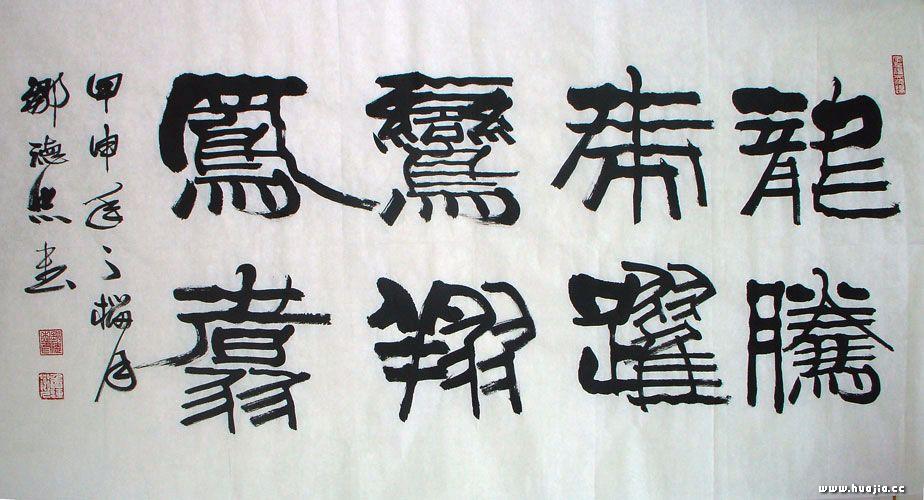 龍騰
虎躍
鸞翔
鳳翥
甲申年之榴月
鄒德忠書
www.huajia.cc